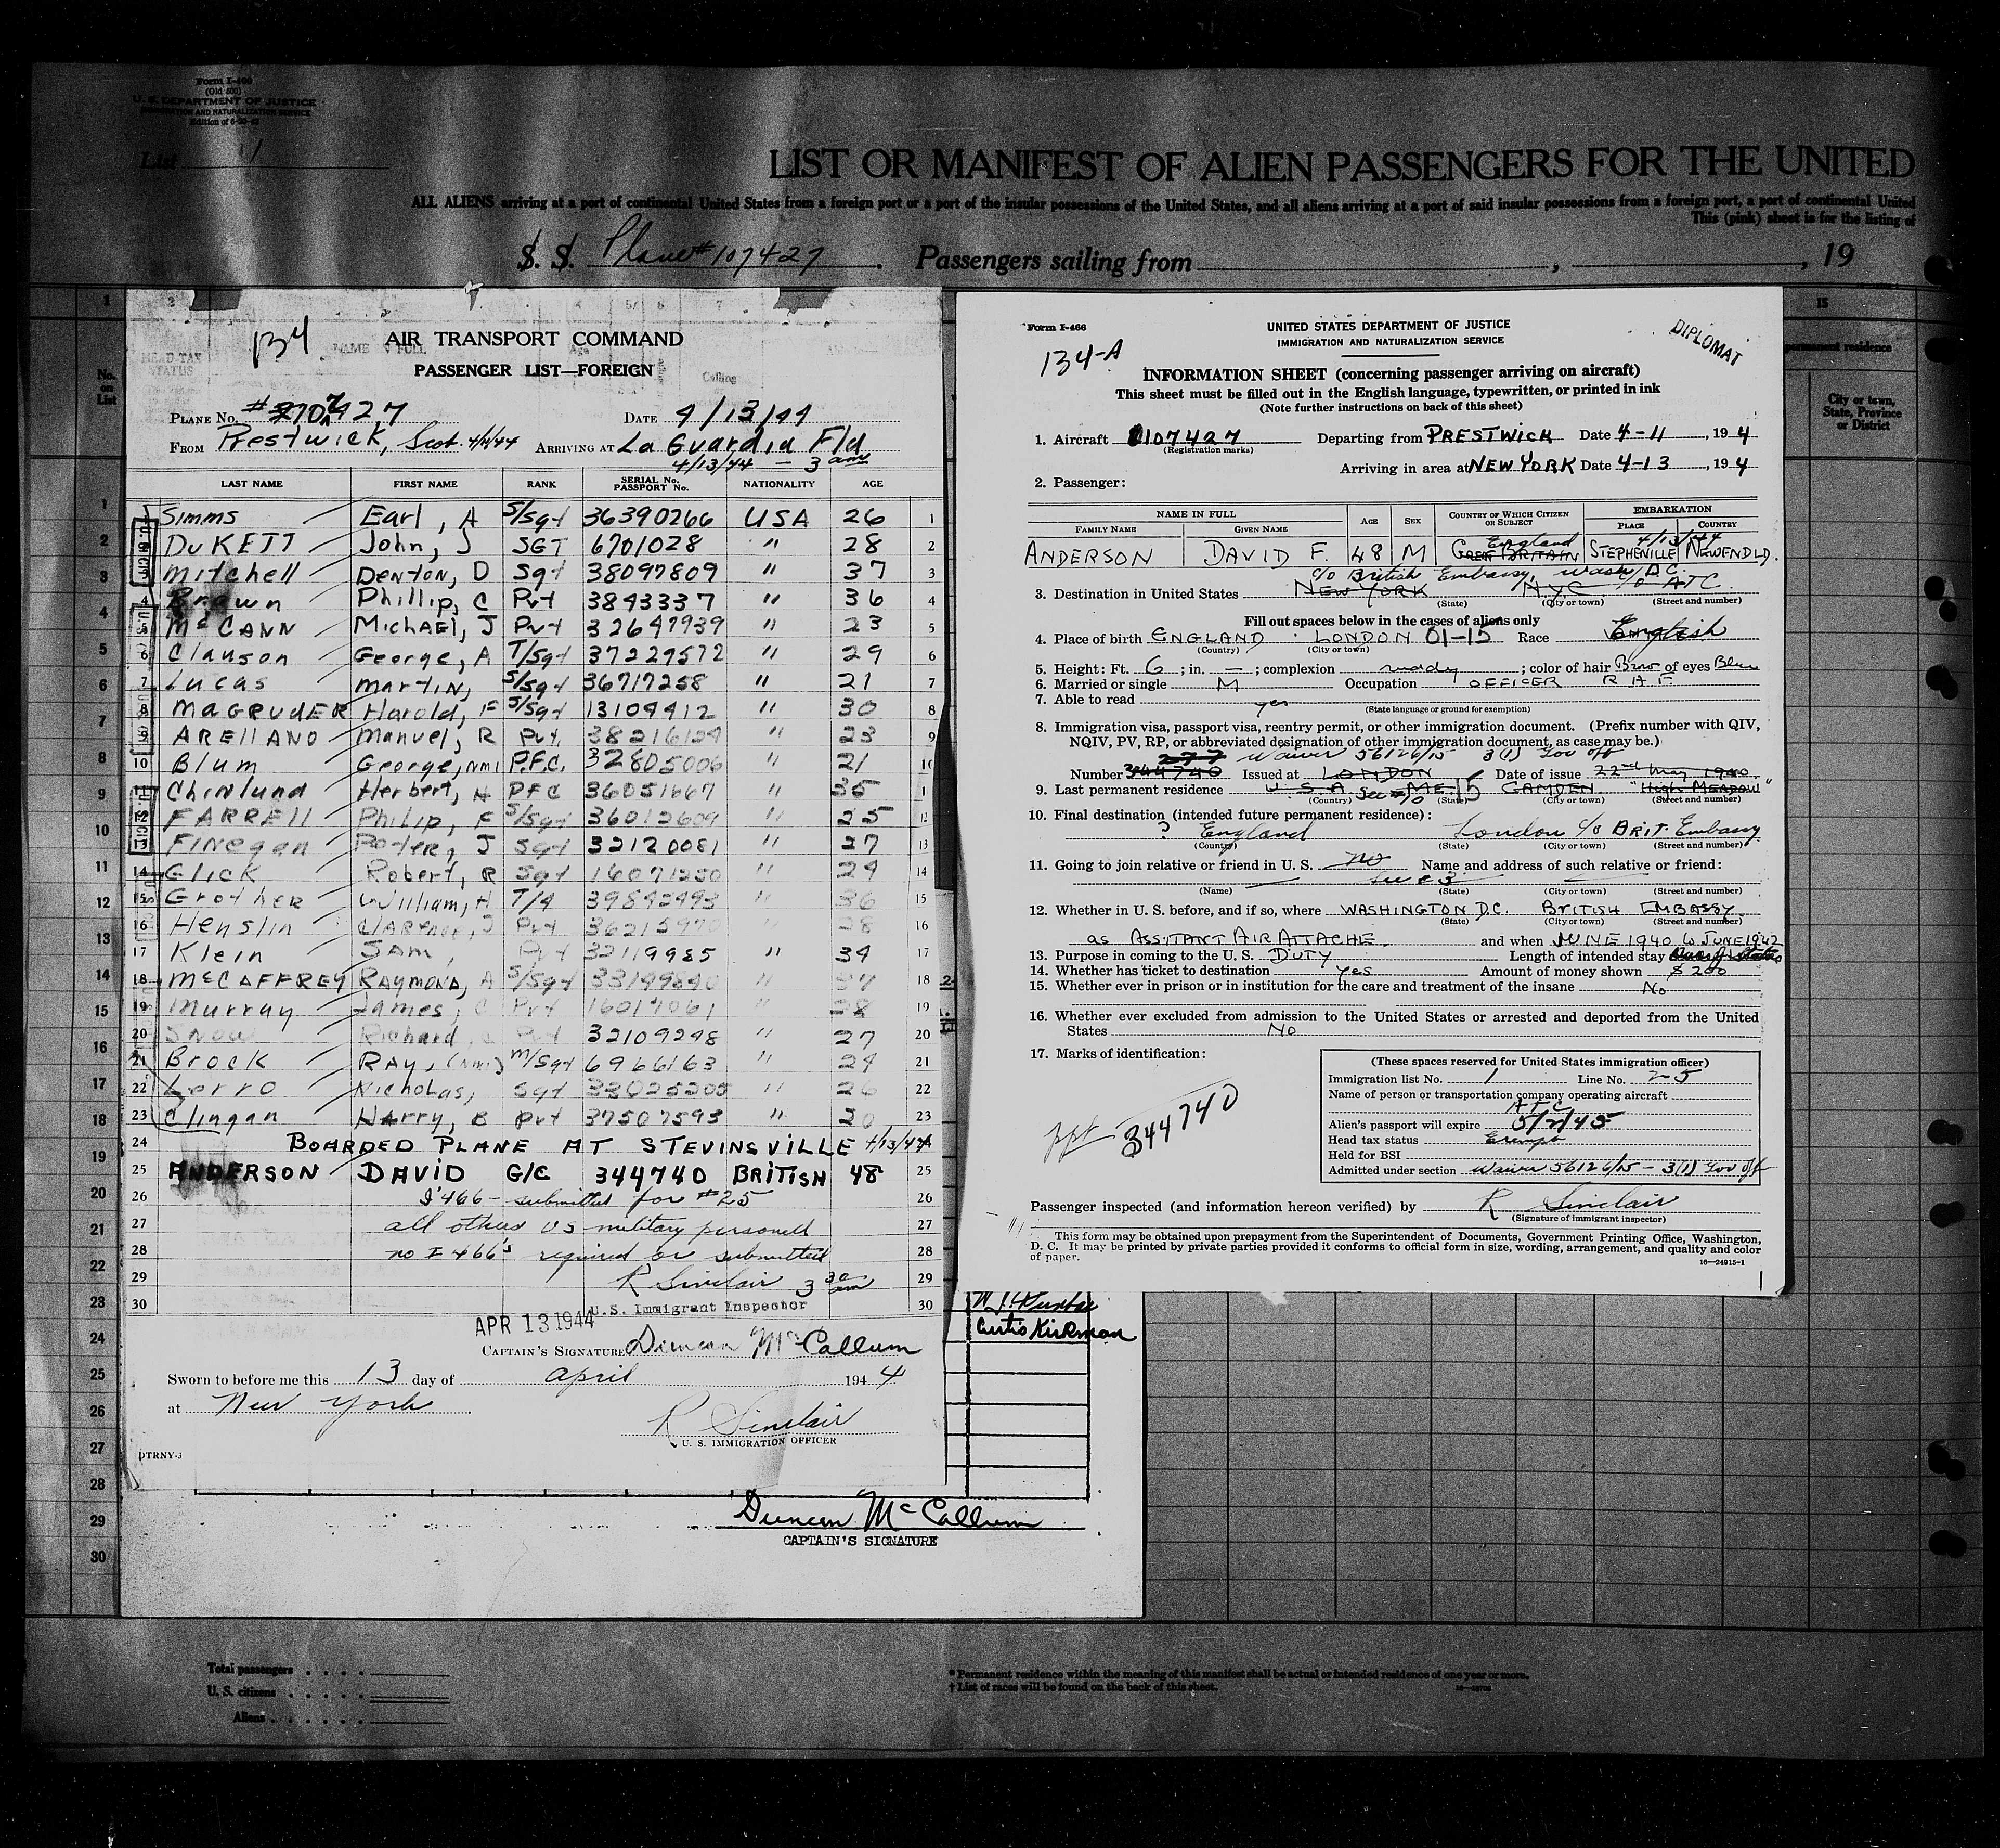 Form I-400
(Old 500)
U. S. DEPARTMENT OF JUSTICE
IMMIGRATION AND NATURALIZATION SERVICE
List 11
LIST OR MANIFEST OF ALIEN PASSENGERS FOR THE UNITED
ALL ALIENS arriving at a port of continental United States from a foreign port or a port of the insular possessions of the United States, and all aliens arriving at a port of said insular possessions from a foreign port, a port of continental United
This (pink) sheet is for the listing of
S. S. Plane # 107427 . Passengers sailing from , , 19
134
AIR TRANSPORT COMMAND
PASSENGER LIST—FOREIGN
PLANE No. DATE 4/13/44
FROM Prestwick, Scot. ARRIVING AT La Guardia Fld
4/13/44 - 3 am
LAST NAME FIRST NAME RANK SERIAL No. PASSPORT No. NATIONALITY AGE
1 Simms Earl, A S/Sgt 36390266 USA 26 1
2 DuKETT John, J SGT 6701028 " 28 2
3 Mitchell Denton, D Sgt 38097809 " 37 3
4 Brown Phillip, C Pvt 3843337 " 36 4
5 McCANN Michael, J Pvt 32647939 " 23 5
6 Clauson George, A T/Sgt 37229572 " 29 6
7 Lucas Martin, S/Sgt 36717258 " 21 7
8 MAGRUDER Harold, F S/Sgt 13109412 " 30 8
9 ARELLANO Manuel, R Pvt. 38216124 " 23 9
10 Blum George, NMI P.F.C. 32805006 " 21 10
Chinlund Herbert, H PFC 36051667 " 35
12 FARRELL Philip, F S/Sgt 36012609 " 25 12
13 Finegan J Sgt 32120081 " 27 13
14 Glick Robert, R Sgt 16071250 " 29 14
15 Grother William, H T/4 39842493 " 36 15
16 Henslin Clarence, J Pvt " 28 16
17 Klein SAM, Pvt 32119985 " 34 17
18 McCAFFREY RAYMOND, A S/Sgt 33199840 " 18
19 Murray James, C Pvt 16017061 " 28 19
20 Snow Richard, Pvt 32109248 " 27 20
21 Brock RAY, (NMI) M/Sgt 6966163 " 24 21
22 Lerro Nicholas, Sgt 33025205 " 26 22
23 Clingan Harry, B Pvt 37507593 " 20 23
24 BOARDED PLANE AT STEVINSVILLE 4/13/44
25 ANDERSON DAVID G/C 344740 BRITISH 48 25
26 I-466 - submitted for #25 26
27 all others US military personell 27
28 no I 466's required or submitted 28
29 R Sinclair 3 30 am 29
30 U.S. Immigrant Inspector 30
APR 13 1944
CAPTAIN'S SIGNATURE Duncan McCallum
Sworn to before me this 13 day of April 194 4
at New York
R Sinclair
U. S. IMMIGRATION OFFICER
DTRNY-3
Curtis Kirkman
Duncan McCallum
CAPTAIN'S SIGNATURE
Form I-466
UNITED STATES DEPARTMENT OF JUSTICE
IMMIGRATION AND NATURALIZATION SERVICE
DIPLOMAT
134-A
INFORMATION SHEET (concerning passenger arriving on aircraft)
This sheet must be filled out in the English language, typewritten, or printed in ink
(Note further instructions on back of this sheet)
1. Aircraft 107427 Departing from PRESTWICK Date 4-11, 194
(Registration marks)
Arriving in area at NEW YORK Date 4-13, 194
2. Passenger:
NAME IN FULL AGE SEX COUNTRY OF WHICH CITIZEN OR SUBJECT EMBARKATION
FAMILY NAME GIVEN NAME PLACE COUNTRY
England 4/13/44
ANDERSON DAVID F. 48 M GREAT BRITAIN STEPHENVILLE NEWFNDLD.
c/o British Embassy, Wash, D.C.
3. Destination in United States NEW YORK N.Y.C. c/o ATC
(State) (City or town) (Street and number)
Fill out spaces below in the cases of aliens only
4. Place of birth ENGLAND LONDON 01-15 Race English
(Country) (City or town)
5. Height: Ft. 6; in. —; complexion ; color of hair Brno of eyes Blue
6. Married or single M Occupation OFFICER R A F
7. Able to read yes
(State language or ground for exemption)
8. Immigration visa, passport visa, reentry permit, or other immigration document. (Prefix number with QIV,
NQIV, PV, RP, or abbreviated designation of other immigration document, as case may be.)
277 Waiver 56126/15 3(1) Gov off
Number 344740 Issued at LONDON Date of issue 22nd May 1940
9. Last permanent residence U S A See #10 ME 15 CAMDEN "High MEADOW"
(Country) (State) (City or town) (Street and number)
10. Final destination (intended future permanent residence):
? England London c/o BRIT. Embassy
(Country) (State) (City or town) (Street and number)
11. Going to join relative or friend in U. S. no Name and address of such relative or friend:
(Name) (State) (City or town) (Street and number)
12. Whether in U. S. before, and if so, where WASHINGTON D.C. BRITISH EMBASSY
(State) (City or town) (Street and number)
as ASSITANT AIR ATTACHE. and when JUNE 1940 to JUNE 1942
13. Purpose in coming to the U. S. DUTY Length of intended stay
14. Whether has ticket to destination Yes Amount of money shown $ 200
15. Whether ever in prison or in institution for the care and treatment of the insane No
16. Whether ever excluded from admission to the United States or arrested and deported from the United
States No
17. Marks of identification:
ppt 344740
(These spaces reserved for United States immigration officer)
Immigration list No. 1 Line No. 25
Name of person or transportation company operating aircraft
A T C
Alien's passport will expire 5/2/45
Head tax status Exempt
Held for BSI
Admitted under section Waiver 56126/15 - 3(1) Gov off
Passenger inspected (and information hereon verified) by R Sinclair
(Signature of immigrant inspector)
This form may be obtained upon prepayment from the Superintendent of Documents, Government Printing Office, Washington,
D. C. It may be printed by private parties provided it conforms to official form in size, wording, arrangement, and quality and color
of paper.
16—24915-1
15
permanent residence
City or town, State, Province or District
No. on List
Total passengers
U. S. citizens
Aliens
* Permanent residence within the meaning of this manifest shall be actual or intended residence of one year or more.
† List of races will be found on the back of this sheet.